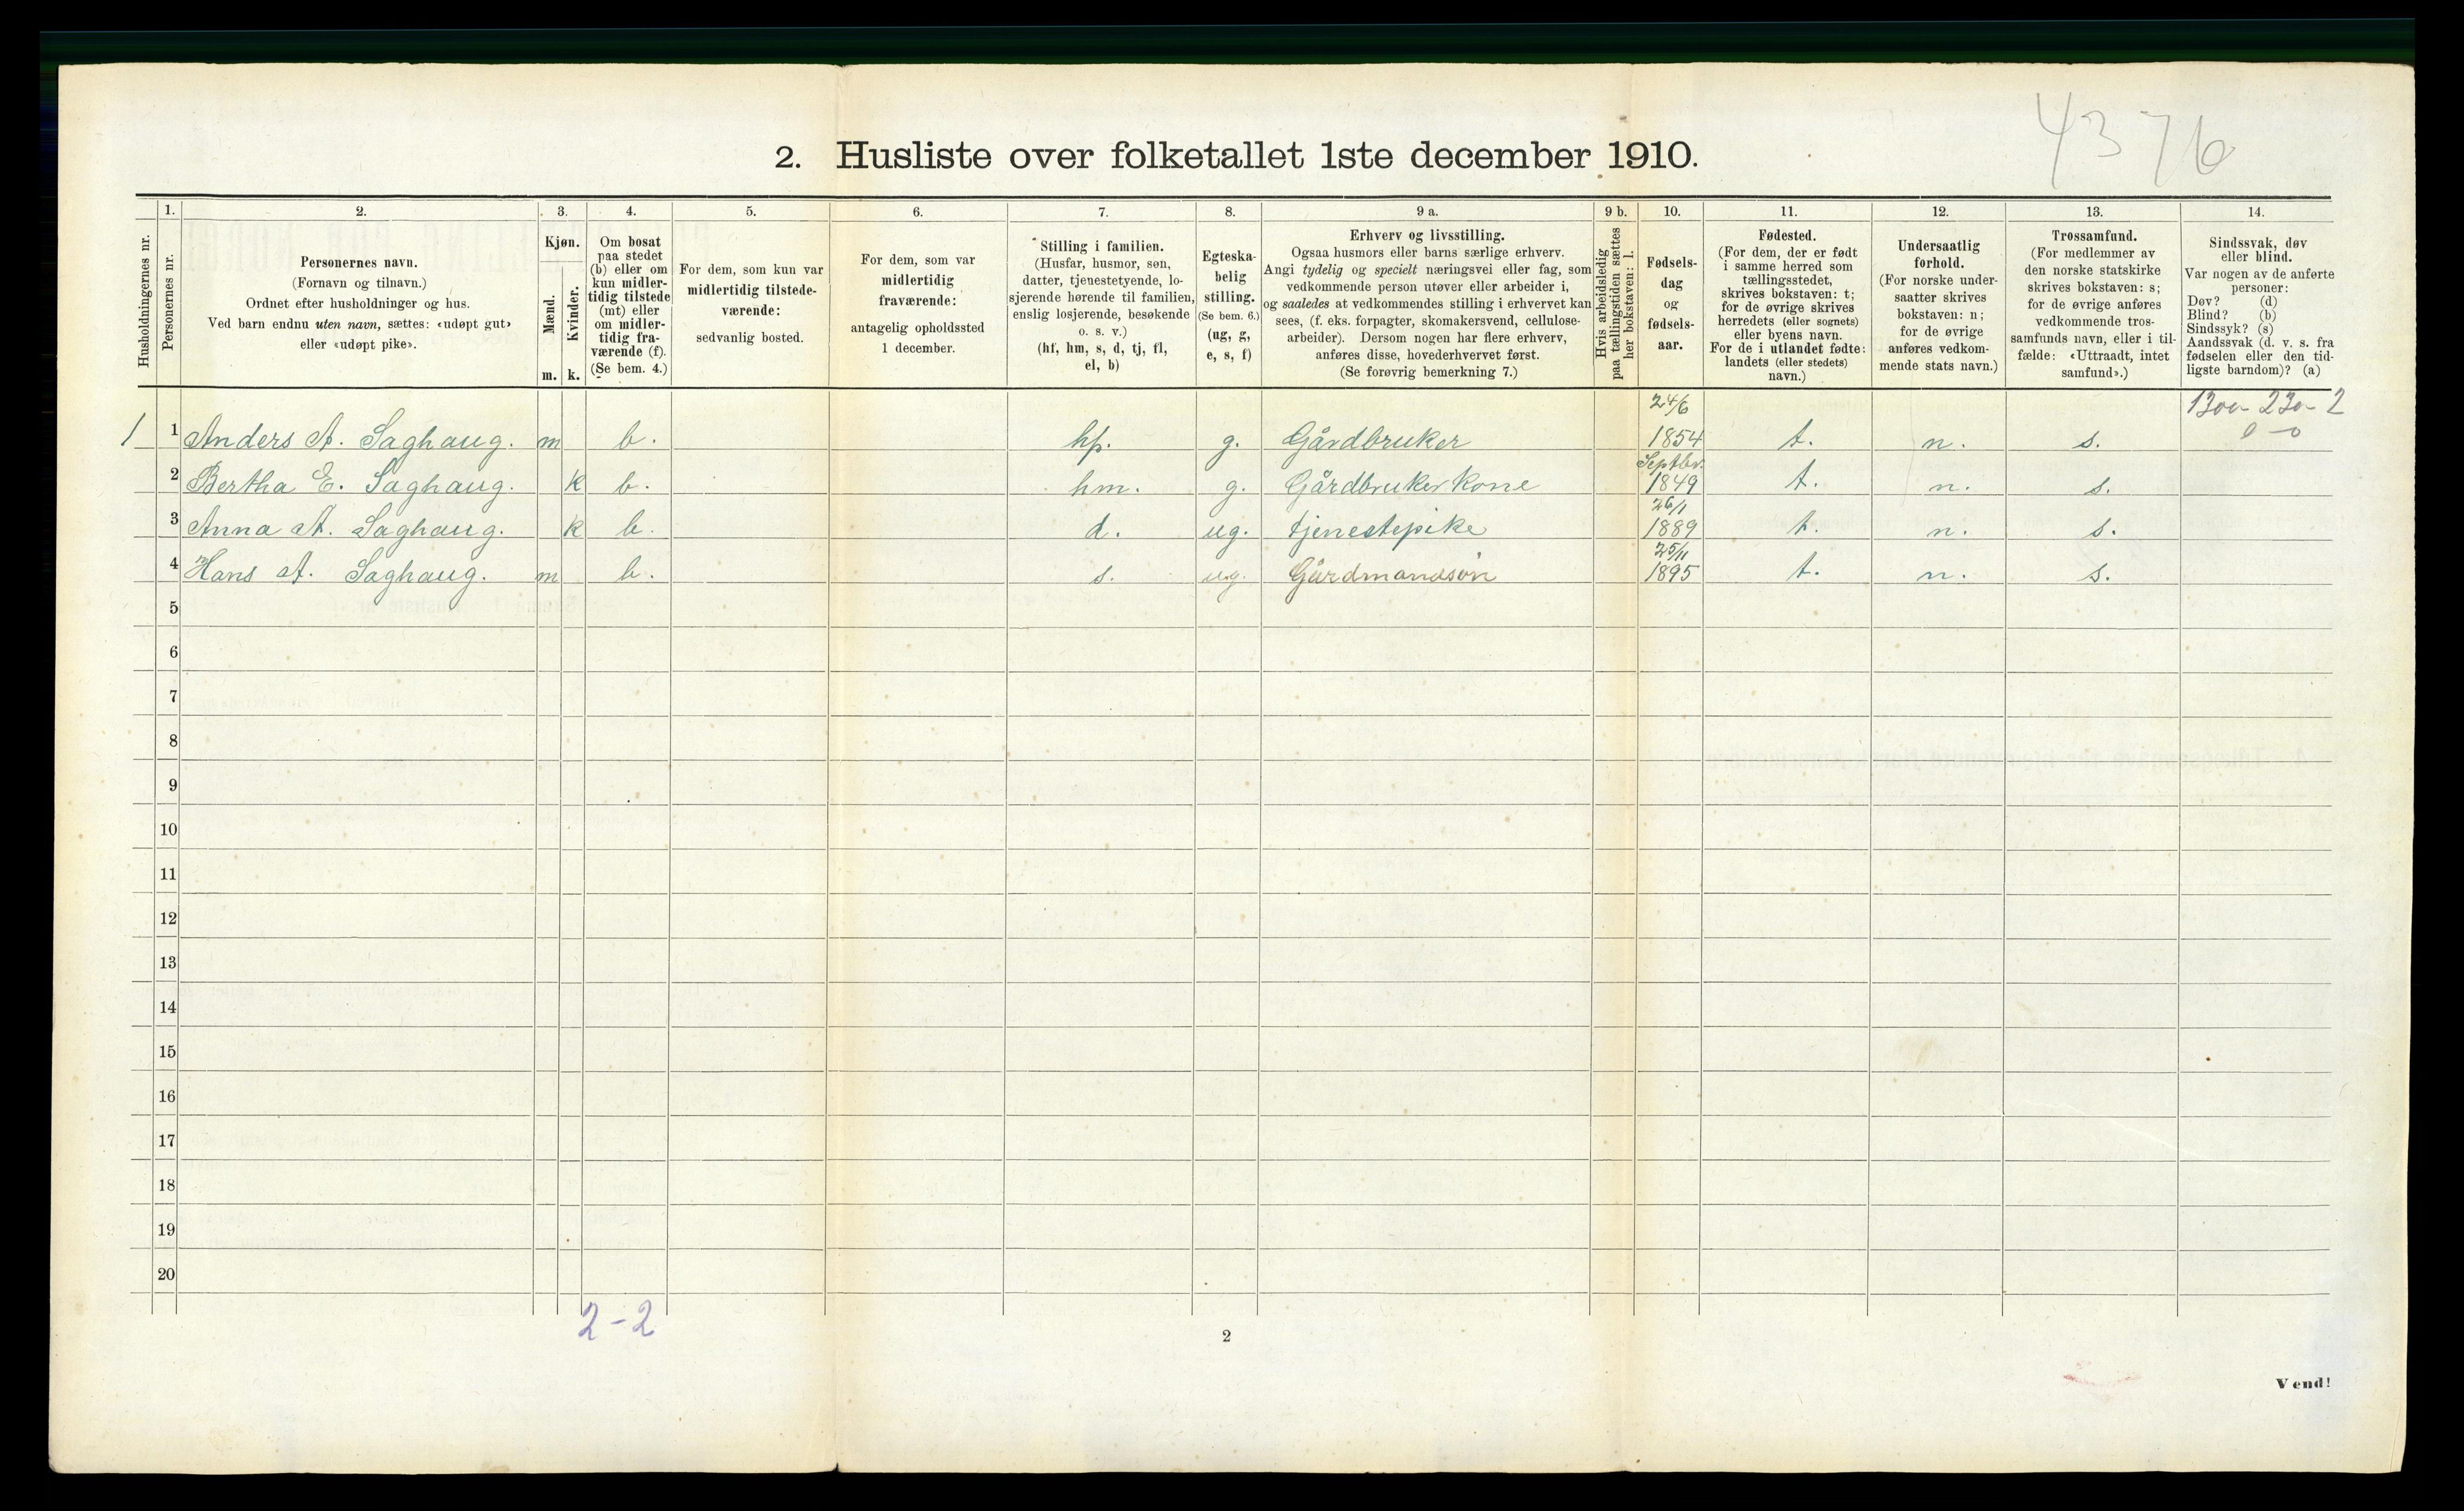 4376
2. Husliste over folketallet 1ste december 1910.
Husholdningernes nr.
1. Personernes nr.
2. Personernes navn.
(Fornavn og tilnavn.)
Ordnet efter husholdninger og hus.
Ved barn endnu uten navn, sættes: «udøpt gut»
eller «udøpt pike».
3. Kjøn.
Mænd. m.
Kvinder. k.
4. Om bosat
paa stedet
(b) eller om
kun midler-
tidig tilstede
(mt) eller
om midler-
tidig fra-
værende (f).
(Se bem. 4.)
5. For dem, som kun var
midlertidig tilstede-
værende:
sedvanlig bosted.
6. For dem, som var
midlertidig
fraværende:
antagelig opholdssted
1 december.
7. Stilling i familien.
(Husfar, husmor, søn,
datter, tjenestetyende, lo-
sjerende hørende til familien,
enslig losjerende, besøkende
o. s. v.)
(hf, hm, s, d, tj, fl,
el, b)
8. Egteska-
belig
stilling.
(Se bem. 6.)
(ug, g,
e, s, f)
9 a. Erhverv og livsstilling.
Ogsaa husmors eller barns særlige erhverv.
Angi tydelig og specielt næringsvei eller fag, som
vedkommende person utøver eller arbeider i,
og saaledes at vedkommendes stilling i erhvervet kan
sees, (f. eks. forpagter, skomakersvend, cellulose-
arbeider). Dersom nogen har flere erhverv,
anføres disse, hovederhvervet først.
(Se forøvrig bemerkning 7.)
9 b. Hvis arbeidsledig
paa tællingstiden sættes
her bokstaven: l.
10. Fødsels-
dag
og
fødsels-
aar.
11. Fødested.
(For dem, der er født
i samme herred som
tællingsstedet,
skrives bokstaven: t;
for de øvrige skrives
herredets (eller sognets)
eller byens navn.
For de i utlandet fødte:
landets (eller stedets)
navn.)
12. Undersaatlig
forhold.
(For norske under-
saatter skrives
bokstaven: n;
for de øvrige
anføres vedkom-
mende stats navn.)
13. Trossamfund.
(For medlemmer av
den norske statskirke
skrives bokstaven: s;
for de øvrige anføres
vedkommende tros-
samfunds navn, eller i til-
fælde: «Uttraadt, intet
samfund».)
14. Sindssvak, døv
eller blind.
Var nogen av de anførte
personer:
Døv? (d)
Blind? (b)
Sindssyk? (s)
Aandssvak (d. v. s. fra
fødselen eller den tid-
ligste barndom)? (a)
1 1 Anders A. Saghaug. m b. hf. g. Gårdbruker 24/6 1854 t. n. s.
2 Bertha E. Saghaug. k b. hm. g. Gårdbruker kone Septbr. 1849 t. n. s.
3 Anna A. Saghaug. k b. d. ug. tjenestepike 26/1 1889 t. n. s.
4 Hans A. Saghaug. m b. s. ug. Gårdmandsøn 25/11 1895 t. n. s.
5
6
7
8
9
10
11
12
13
14
15
16
17
18
19
20
2-2
2
Vend!